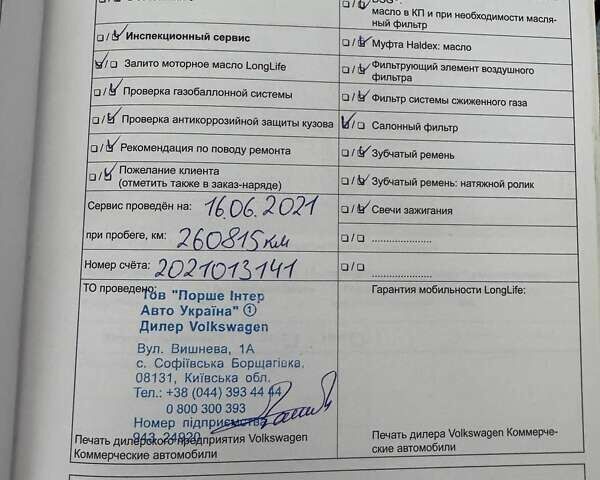 масло в КП и при необходимости масля-
ный фильтр
Инспекционный сервис
Муфта Haldex: масло
Залито моторное масло LongLife
Фильтрующий элемент воздушного
фильтра
Проверка газобаллонной системы
Фильтр системы сжиженного газа
Проверка антикоррозийной защиты кузова
Салонный фильтр
Рекомендация по поводу ремонта
Зубчатый ремень
Пожелание клиента
(отметить также в заказ-наряде)
Зубчатый ремень: натяжной ролик
Сервис проведён на: 16.06.2021
Свечи зажигания
при пробеге, км: 260815 км
Номер счёта: 2021013141
ТО проведено:
Гарантия мобильности LongLife:
Тов "Порше Інтер
Авто Україна" ①
Дилер Volkswagen
Вул. Вишнева, 1А
с. Софіївська Борщагівка,
08131, Київська обл.
Тел.: +38 (044) 393 44 44
0 800 300 393
Номер підприємства
943 24920
Печать дилерского предприятия Volkswagen
Коммерческие автомобили
Печать дилера Volkswagen Коммерче-
ские автомобили